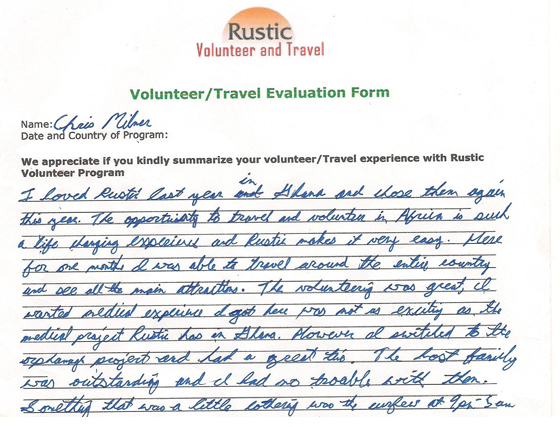 Rustic
Volunteer and Travel
Volunteer/Travel Evaluation Form
Name: Chris Milner
Date and Country of Program:
We appreciate if you kindly summarize your volunteer/Travel experience with Rustic
Volunteer Program
in
I loved Rustic last year Ghana and chose them again
this year. The opportunity to travel and volunteer in Africa is such
a life changing experience and Rustic makes it very easy. Here
for one month I was able to travel around the entire country
and see all the main attractions. The volunteering was great, I
wanted medical experience I got here was not as exciting as, the
medical project Rustic has in Ghana. However I switched to the
orphanage project and had a great time. The host family
was outstanding and I had no trouble with them.
Something that was a little bothering was the curfew at 9pm-5am